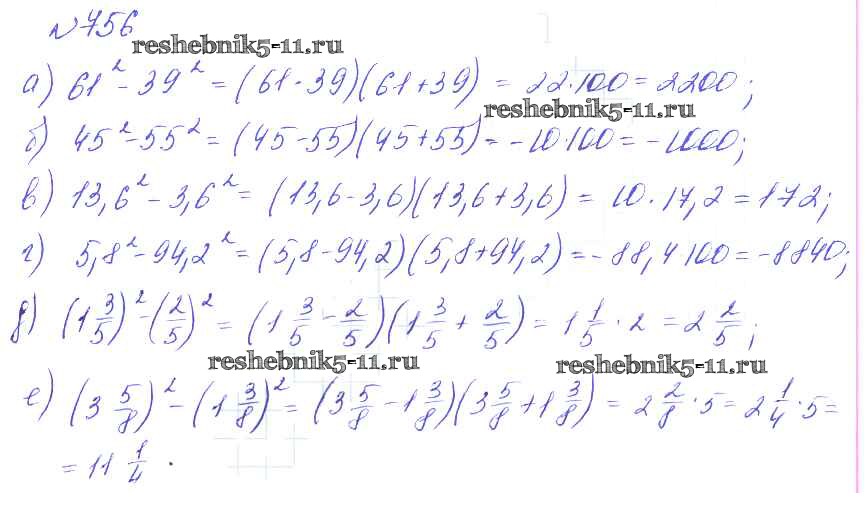 №756
reshebnik5-11.ru
а) 61² - 39² = (61 - 39)(61 + 39) = 22 · 100 = 2200;
reshebnik5-11.ru
б) 45² - 55² = (45 - 55)(45 + 55) = -10 · 100 = -1000;
в) 13,6² - 3,6² = (13,6 - 3,6)(13,6 + 3,6) = 10 · 17,2 = 172;
г) 5,8² - 94,2² = (5,8 - 94,2)(5,8 + 94,2) = -88,4 100 = -8840;
д) (1 3/5)² - (2/5)² = (1 3/5 - 2/5)(1 3/5 + 2/5) = 1 1/5 · 2 = 2 2/5;
reshebnik5-11.ru reshebnik5-11.ru
е) (3 5/8)² - (1 3/8)² = (3 5/8 - 1 3/8)(3 5/8 + 1 3/8) = 2 2/8 · 5 = 2 1/4 · 5 =
= 11 1/4.